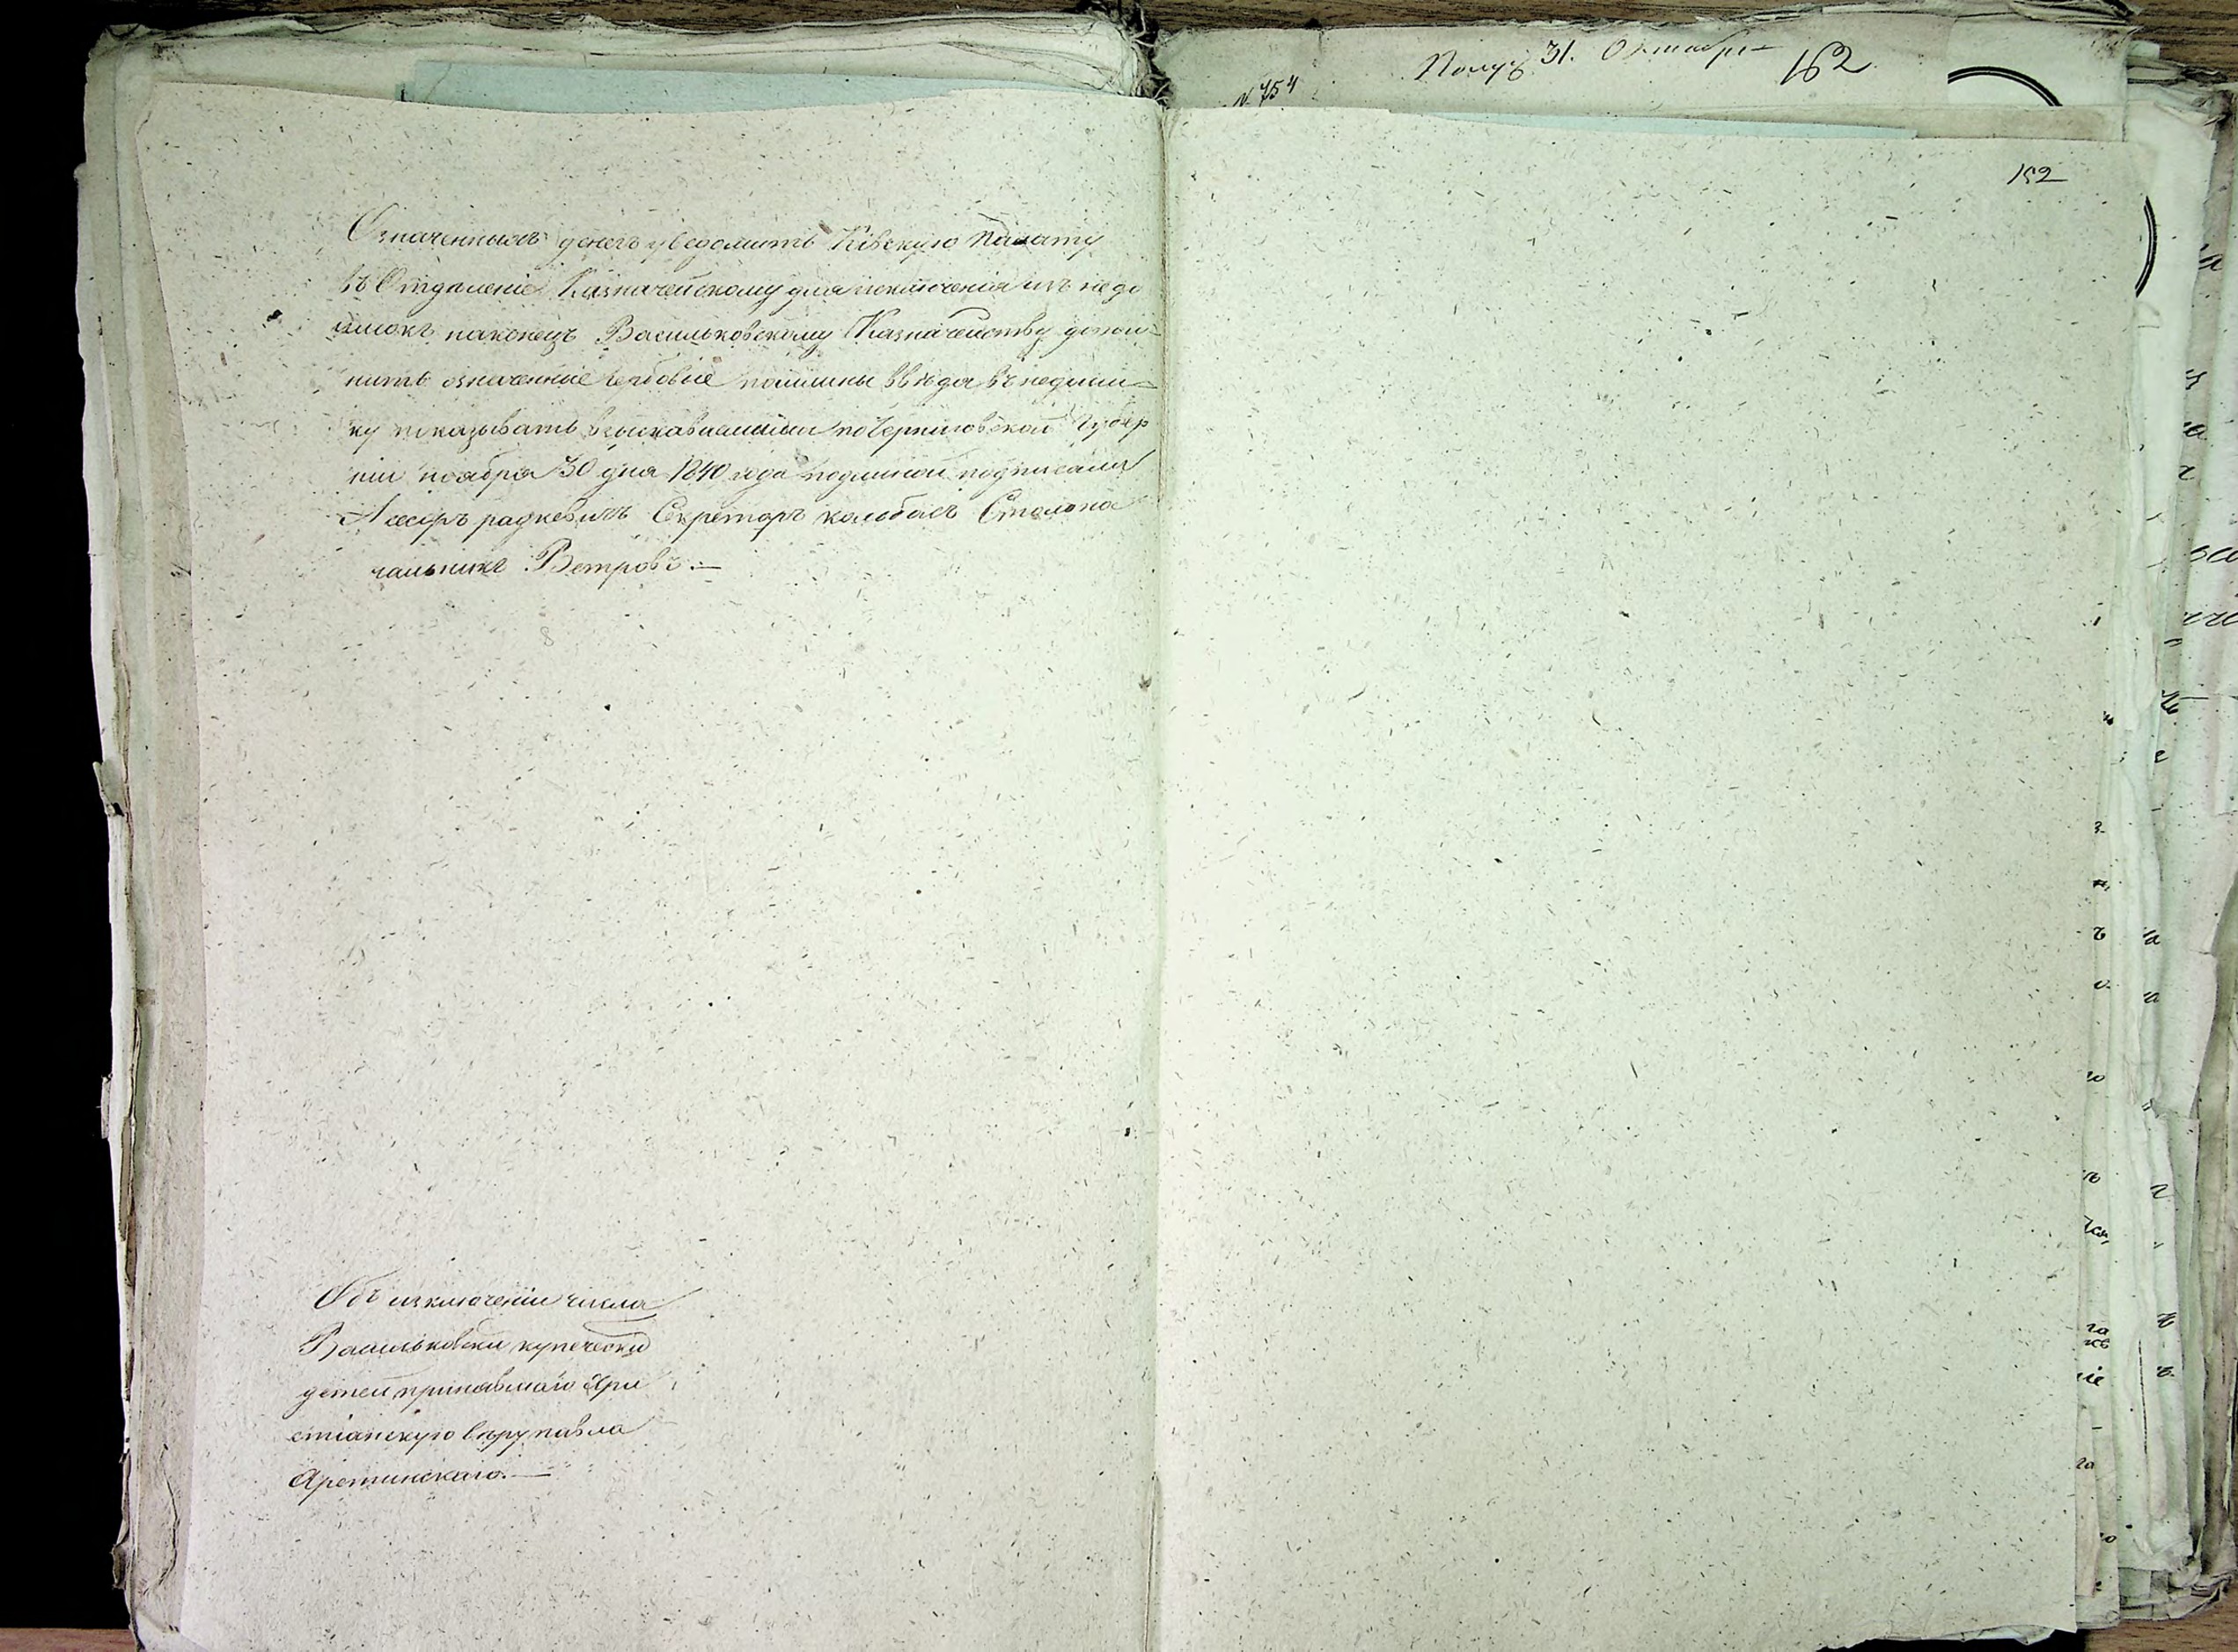 Означенныхъ денегъ уведомить Кіевскую Палату
въ Отделеніе Казначейскому для изключенія изъ недо
имокъ наконецъ Васильковскому Казначейству
нить означенные гербовые пошлины
ку показывать взыскавшимися по Черниговской Губер
ніи ноября 30 дня 1840 года подлинной подписали
Асесоръ радкевичъ Секретаръ колобасъ Столона
чальникъ Ветровъ.—
Объ изключеніи числа
Васильковски купечески
детей принявшаго Хри
стіанскую веру павла
Аретинскаго.—
Получ 31. Октября
162
N. 754
152